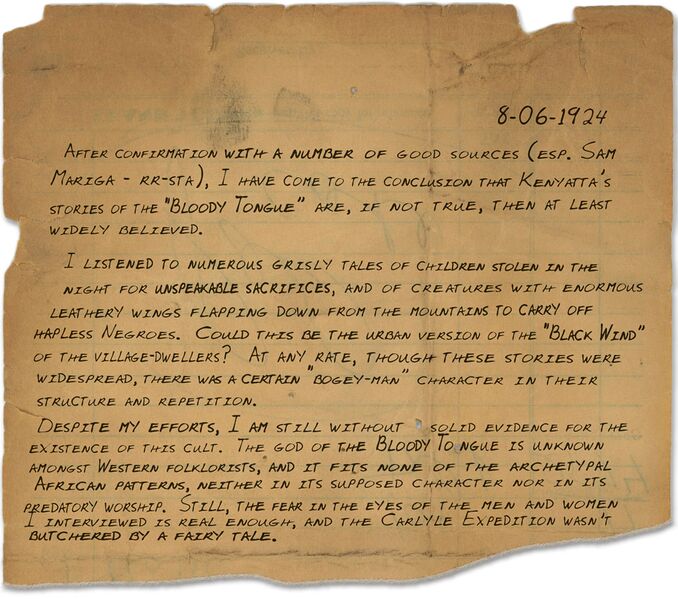 8-06-1924
After confirmation with a number of good sources (esp. Sam
Mariga - rr-sta), I have come to the conclusion that Kenyatta's
stories of the "Bloody Tongue" are, if not true, then at least
widely believed.
I listened to numerous grisly tales of children stolen in the
night for unspeakable sacrifices, and of creatures with enormous
leathery wings flapping down from the mountains to carry off
hapless Negroes. Could this be the urban version of the "Black Wind"
of the village-dwellers? At any rate, though these stories were
widespread, there was a certain "bogey-man" character in their
structure and repetition.
Despite my efforts, I am still without solid evidence for the
existence of this cult. The god of the Bloody Tongue is unknown
amongst Western folklorists, and it fits none of the archetypal
African patterns, neither in its supposed character nor in its
predatory worship. Still, the fear in the eyes of the men and women
I interviewed is real enough, and the Carlyle Expedition wasn't
butchered by a fairy tale.